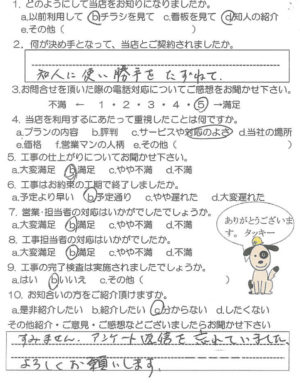 1. どのようにして当店をお知りになりましたか。
a.以前利用して b.チラシを見て c.看板を見て d.知人の紹介
e.その他( )
2. 何が決め手となって、当店とご契約されましたか。
知人に使い勝手をたずねて.
3.お問合せを頂いた際の電話対応についてご感想をお聞かせ下さい。
不満 ← 1・2・3・4・5 →満足
4. 当店を利用するにあたって重視したことは何ですか。
a.プランの内容 b.評判 c.サービスや対応のよさ d.当社の場所
e.価格 f.営業マンの人柄 e.その他( )
5. 工事の仕上がりについてお聞かせ下さい。
a.大変満足 b.満足 c.やや不満 d.不満
6. 工事はお約束の工期で終了しましたか。
a.予定より早い b.予定通り c.やや遅れた d.大変遅れた
7. 営業・担当者の対応はいかがでしたでしょうか。
a.大変満足 b.満足 c.やや不満 d.不満
8. 工事担当者の対応はいかがでしたか。
a.大変満足 b.満足 c.やや不満 d.不満
9. 工事の完了検査は実施されましたでしょうか。
a.はい b.いいえ c.その他( )
ありがとうございま
す。タッキー
10. お知合いの方をご紹介頂けますか。
a.是非紹介したい b.紹介したい c.分からない d.したくない
その他紹介・ご意見・ご感想などございましたらお聞かせ下さい
すみません、アンケート返信を忘れていました。
よろしくお願いします.